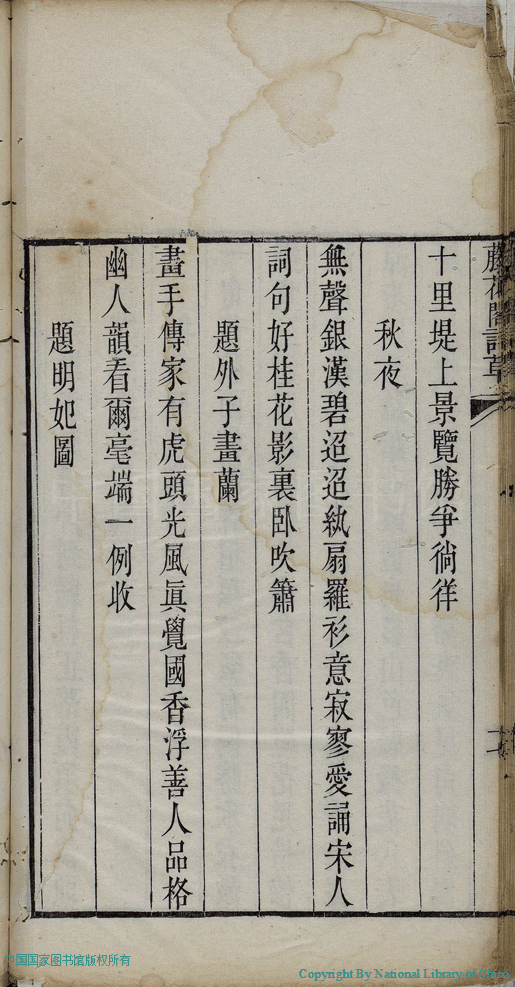 藤花閣詩草
十里堤上景覽勝爭徜徉
秋夜
無聲銀漢碧迢迢紈扇羅衫意寂寥愛誦宋人
詞句好桂花影裏臥吹簫
題外子畫蘭
畫手傳家有虎頭光風眞覺國香浮善人品格
幽人韻看爾毫端一例收
題明妃圖
中国国家图书馆版权所有
Copyright By National Library of China